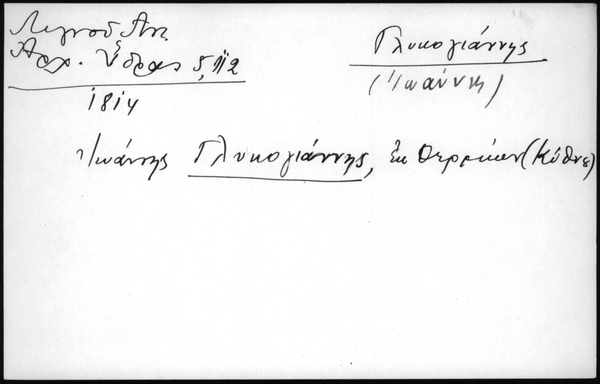 Λιγνοῦ Ἀν.
Ἀρχ. Ὕδρας 5, 112
1814
Γλυκογιάννης
(Ἰωάννης)
Ἰωάννης Γλυκογιάννης, ἐκ Θερμίων (Κύθνου)